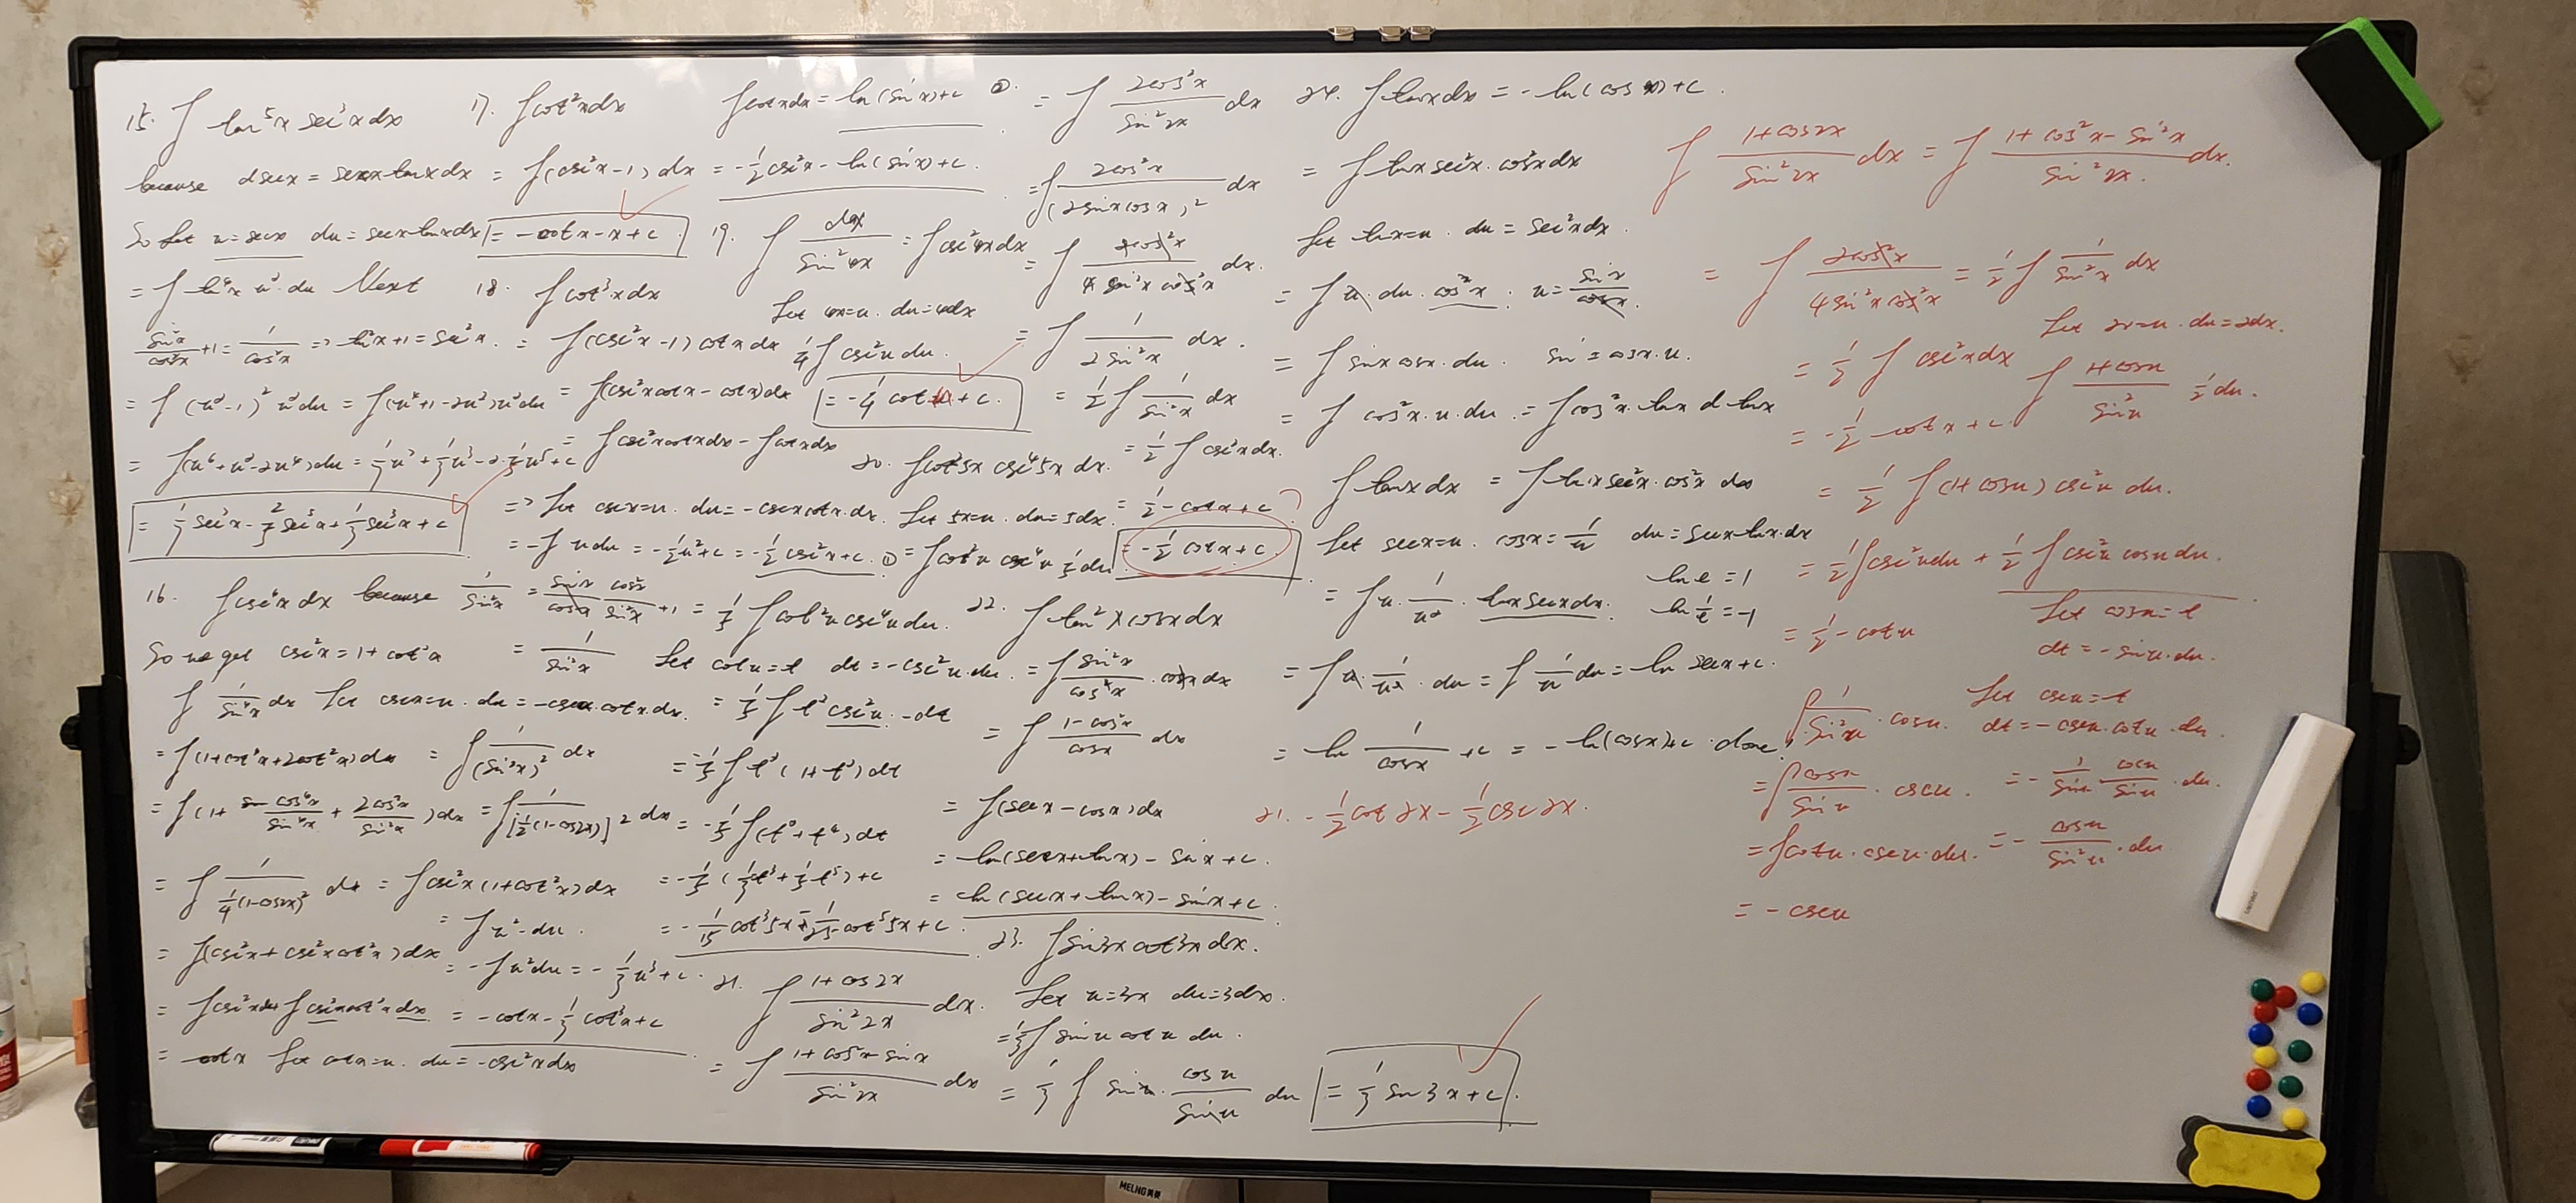 15. ∫ tan⁵x sec³x dx
because dsecx = secx tanx dx
So let u = secx du = secx tanx dx
= ∫ tan⁴x u² du Next
sin²x/cos²x + 1 = 1/cos²x => tan²x + 1 = sec²x.
= ∫ (u²-1)² u² du = ∫(u⁴+1-2u²)u² du
= ∫(u⁶+u²-2u⁴)du = 1/7 u⁷ + 1/3 u³ - 2·1/5 u⁵ + c
16. ∫ csc⁴x dx because
So we get csc²x = 1 + cot²x
= 1/sin²x
∫ 1/sin⁴x dx Let cscx = u. du = -cscx·cotx dx.
= ∫(1+cot⁴x+2cot²x)dx = ∫ 1/(sin²x)² dx
= ∫(1 + cos⁴x/sin⁴x + 2cos²x/sin²x)dx = ∫ 1/[½(1-cos2x)]² dx
= ∫ 1/(¼(1-cos2x)²) dx = ∫csc²x(1+cot²x)dx
= ∫u²-du.
= ∫(csc²x+csc²xcot²x)dx
= -∫u²du = -1/3 u³+c.
= ∫csc²xdx+∫csc²xcot²xdx = -cotx-1/3 cot³x+c
= cotx Let cotx=u. du = -csc²xdx
17. ∫cot²xdx
= ∫(csc²x-1)dx
= -cotx-x+c
18. ∫cot³xdx
= ∫(csc²x-1)cotxdx
= ∫(csc²xcotx-cotx)dx
= ∫csc²xcotxdx-∫cotxdx
=> Let cscx=u. du=-cscxcotx.dx.
= -∫udu = -½u²+c = -½csc²x+c. ①
∫cotxdx = ln(sinx)+c ②
= -½csc²x-ln(sinx)+c.
19. ∫ dx/sin²4x = ∫csc²4xdx
Let 4x=u. du=4dx
¼∫csc²udu.
20. ∫cot²5x csc⁴5x dx.
Let 5x=u. du=5dx.
= ∫cot²u csc⁴u 1/5 du
= 1/5∫cot²ucsc⁴udu.
Let cotu=t dt=-csc²u.du.
= 1/5∫t² csc²u.-dt
= -1/5∫t²(1+t²)dt
= -1/5∫(t²+t⁴)dt
= -1/5(1/3t³+1/5t⁵)+c
= -1/15 cot³5x-1/25 cot⁵5x+c.
21. ∫ (1+cos2x)/sin²2x dx.
= ∫ (1+cos²x-sin²x)/sin²2x dx
= ∫ 2cos²x/sin²2x dx
= ∫ 2cos²x/(2sinxcosx)² dx
= ∫ 2cos²x/(4sin²xcos²x) dx.
= ∫ 1/(2sin²x) dx.
= ½∫ 1/sin²x dx
= ½∫csc²xdx.
= ½-cotx+c
= -½cotx+c
22. ∫tan²xcosxdx
= ∫ sin²x/cos²x.cosxdx
= ∫ (1-cos²x)/cosx dx
= ∫(secx-cosx)dx
= ln(secx+tanx)-sinx+c.
= ln(secx+tanx)-sinx+c
23. ∫sin3xcot3xdx.
Let u=3x du=3dx.
= 1/3∫sinucotudu.
= 1/3∫sinu.cosu/sinu du
= 1/3 sin3x+c.
24. ∫tanxdx = -ln(cosx)+c.
= ∫tanxsec²x.cos²xdx
Let tanx=u. du=sec²xdx.
= ∫u.du.cos²x. u=sinx/cosx.
= ∫sinxcosx.du. sin=cosx.u.
= ∫cos²x.u.du. = ∫cos²x.tanx d tanx
∫tanxdx = ∫tanxsec²x.cos²xdx
Let secx=u. cosx=1/u du=secx.tanx.dx
lne=1
= ∫u.1/u².tanxsecxdx. ln1/e=-1
= ∫u.1/u².du = ∫1/u du = ln secx+c.
= ln 1/cosx+c = -ln(cosx)+c. done.
21. -½cot2x-½csc2x.
∫ (1+cos2x)/sin²2x dx = ∫ (1+cos²x-sin²x)/sin²2x dx.
= ∫ 2cos²x/(4sin²xcos²x) = ½∫1/sin²x dx
Let 2x=u. du=2dx.
= ½∫csc²xdx
∫ (1+cosu)/sin²u ½du.
= -½cotx+c.
= ½∫(1+cosu)csc²udu.
= ½∫csc²udu+½∫csc²ucosudu.
Let cosu=t
= ½-cotu
dt=-sinu.du.
∫1/sin²u.cosu. Let cscu=t
dt=-cscu.cotu.du.
= ∫cosu/sinu.cscu. = -1/sinu cosu/sinu.du.
= ∫cotu.cscu.du. = -cosu/sin²u.du
= -cscu